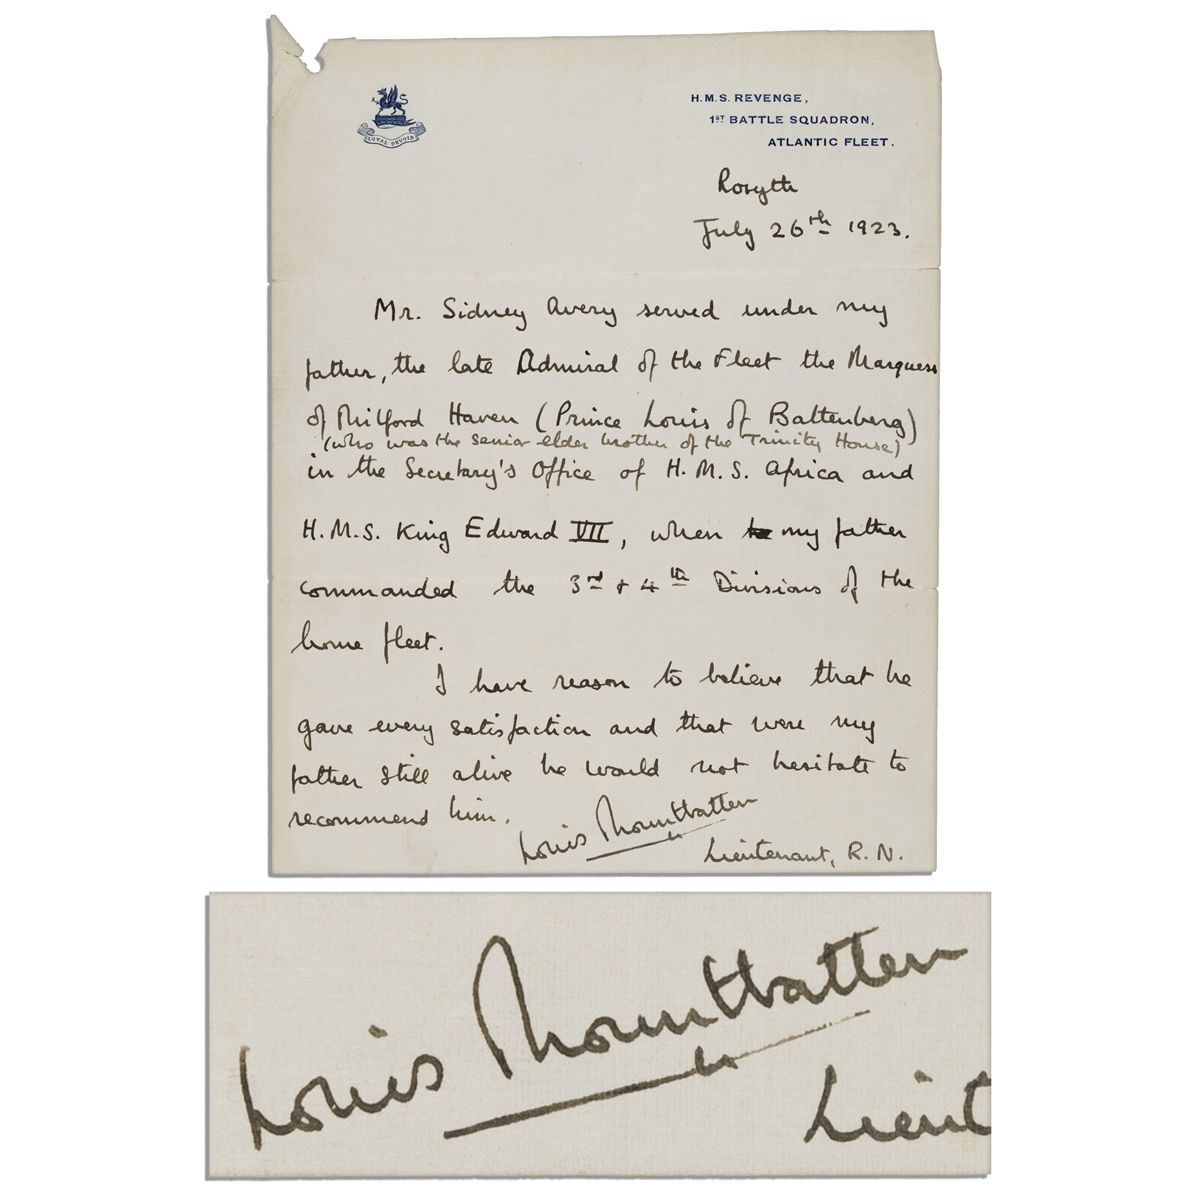 LOYAL DEVOIR
H.M.S. REVENGE,
1ST BATTLE SQUADRON,
ATLANTIC FLEET.
Rosyth
July 26th 1923.
Mr. Sidney Avery served under my
father, the late Admiral of the Fleet the Marquess
of Milford Haven (Prince Louis of Battenberg)
(who was the senior elder brother of the Trinity House)
in the Secretary's Office of H.M.S. Africa and
H.M.S. King Edward VII, when my father
commanded the 3rd & 4th Divisions of the
home fleet.
I have reason to believe that he
gave every satisfaction and that were my
father still alive he would not hesitate to
recommend him.
Louis Mountbatten
Lieutenant, R.N.
Louis Mountbatten
Lieut